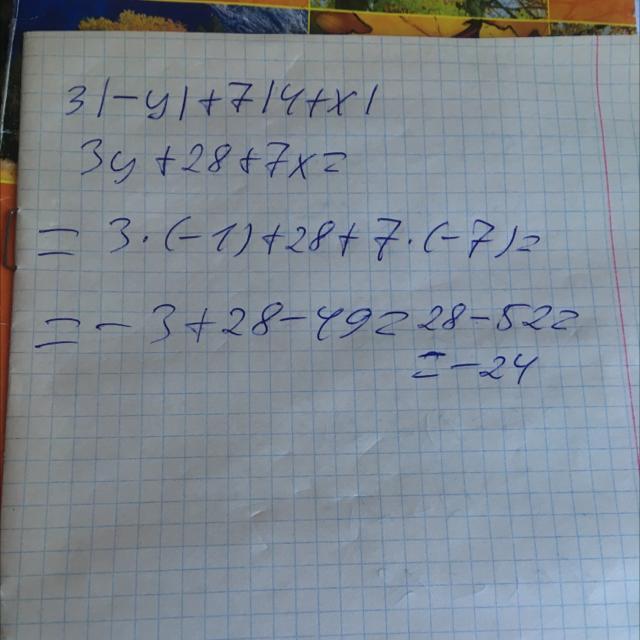 3|-y|+7|4+x|
3y+28+7x=
= 3·(-1)+28+7·(-7)=
= -3+28-49=28-52=
= -24